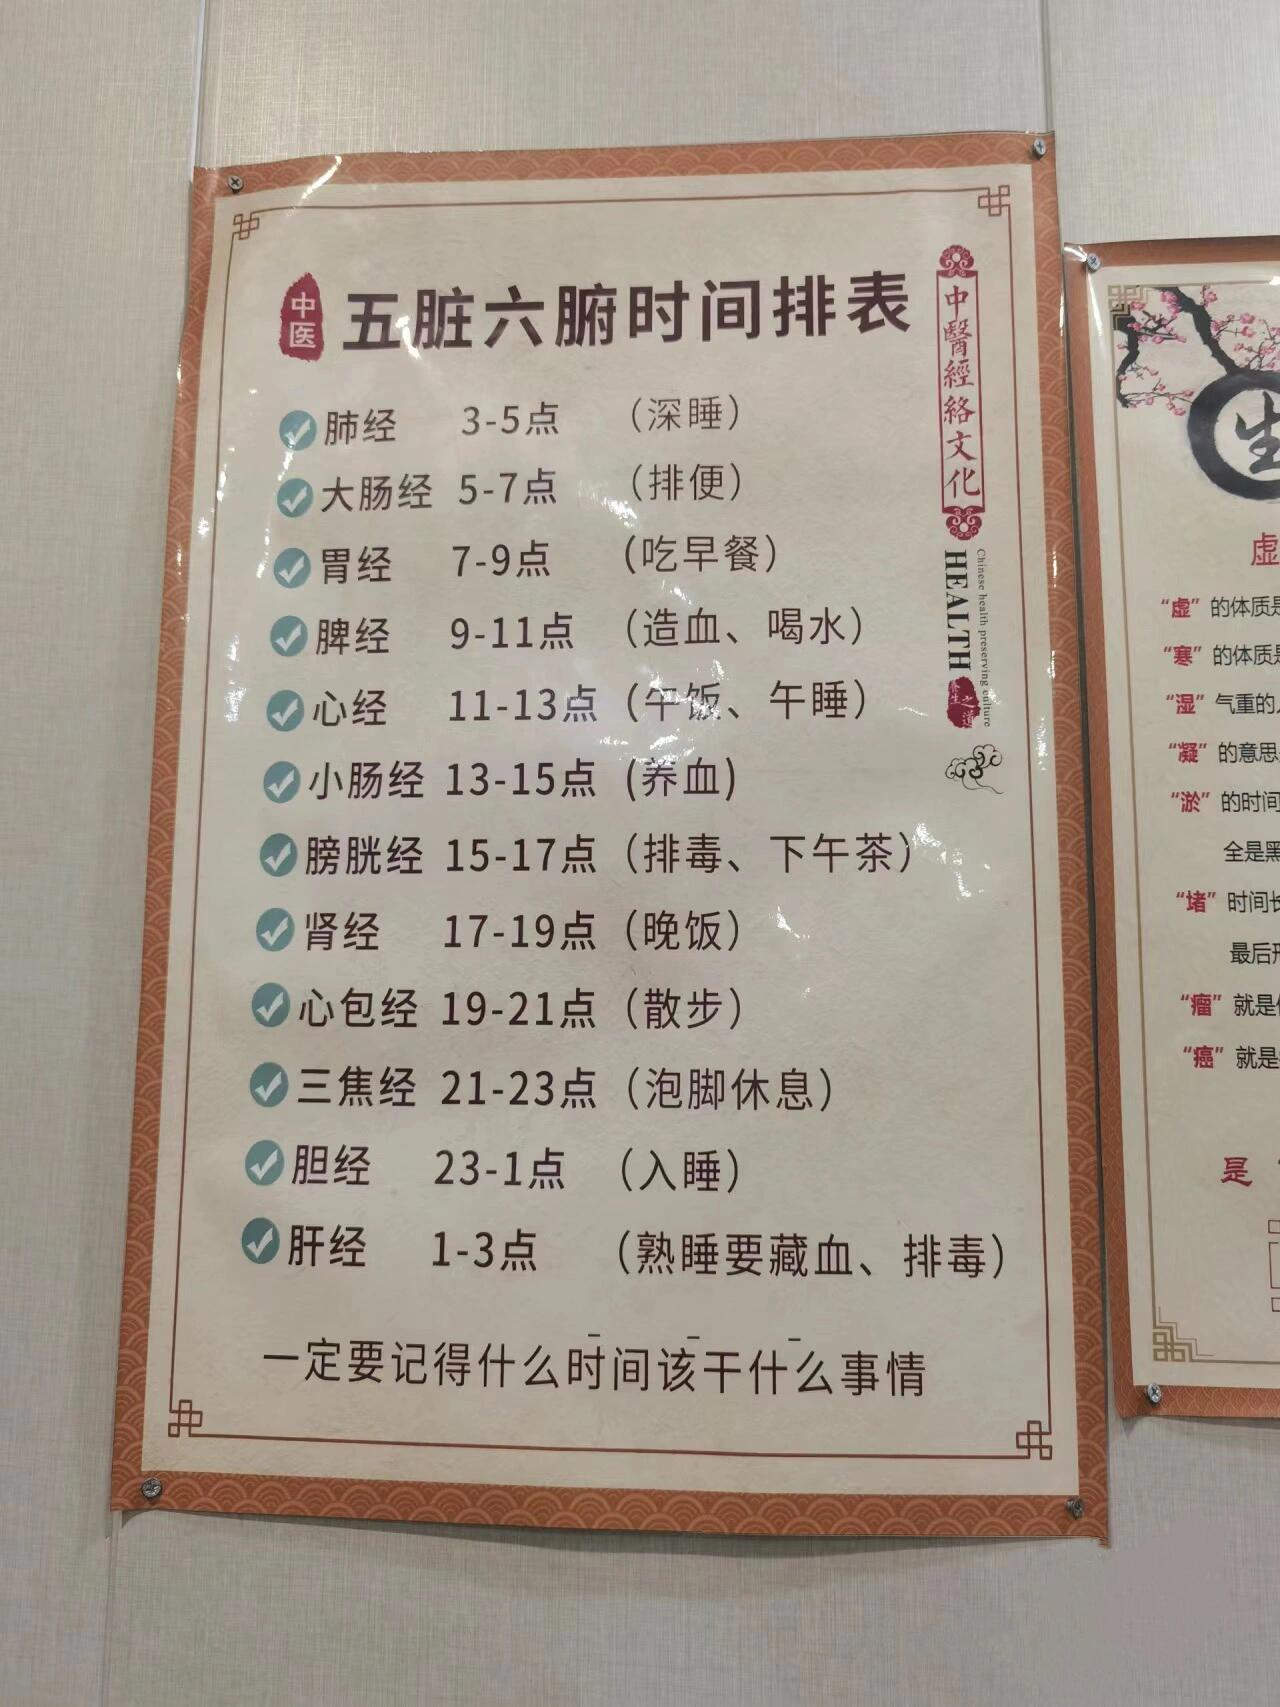 中医
五脏六腑时间排表
肺经 3-5点 （深睡）
大肠经 5-7点 （排便）
胃经 7-9点 （吃早餐）
脾经 9-11点 （造血、喝水）
心经 11-13点 （午饭、午睡）
小肠经 13-15点 （养血）
膀胱经 15-17点 （排毒、下午茶）
肾经 17-19点 （晚饭）
心包经 19-21点 （散步）
三焦经 21-23点 （泡脚休息）
胆经 23-1点 （入睡）
肝经 1-3点 （熟睡要藏血、排毒）
一定要记得什么时间该干什么事情
中醫經絡文化
HEALTH
Chinese health preserving culture
養生之道
生
虚
“虚” 的体质是
“寒” 的体质是
“湿” 气重的
“凝” 的意思
“淤” 的时间
全是黑
“堵” 时间长
最后形
“瘤” 就是
“癌” 就是
是